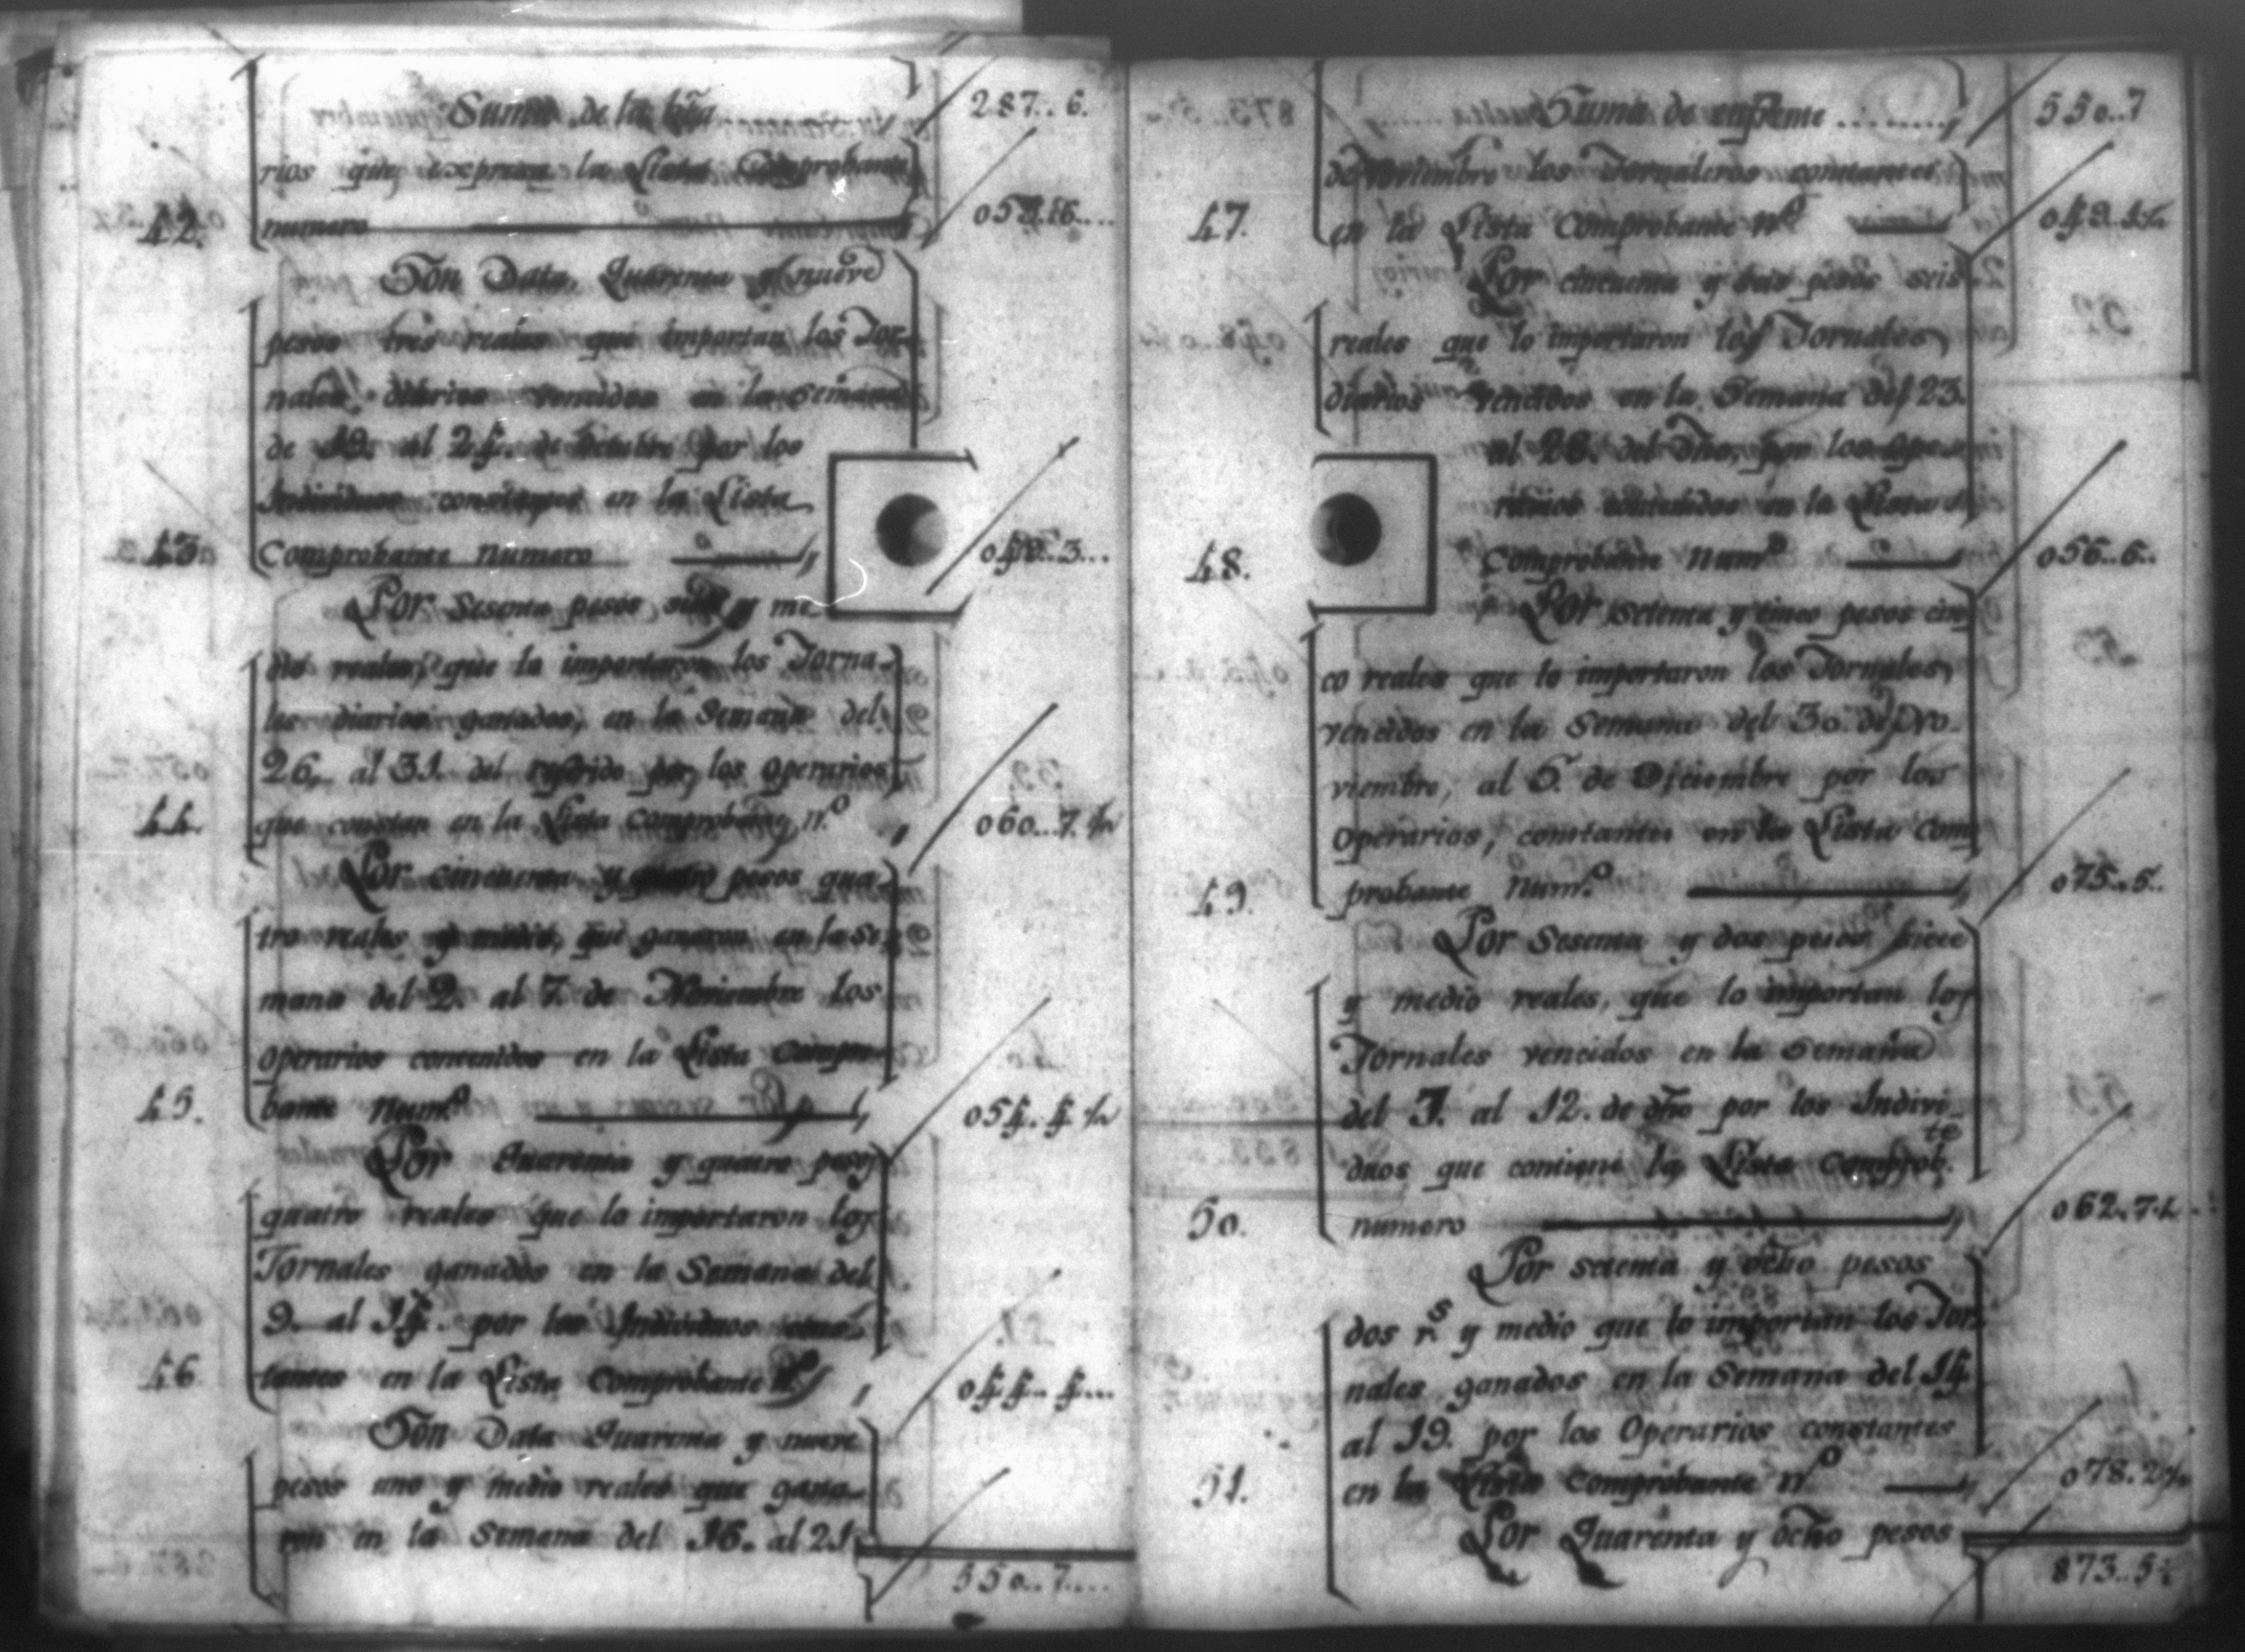 Suma de la bta 287..6.
rios que expresa la Lista Comprobante
42. numero 053..6....
Son Data, Quarenta y nueve
pesos tres reales que importan los Jor-
nales diarios vencidos en la semana
de 19. al 24. de Octubre por los
Individuos constantes en la Lista
43. Comprobante numero 049..3...
Por Sesenta pesos siete y me
dio reales, que lo importaron los Jorna-
les diarios ganados, en la Semana del
26, al 31. del referido por los Operarios
44. que constan en la Lista Comprobante n.º 060..7.½
Por cincuenta y quatro pesos qua-
tro reales y medio, que ganaron en la Se
mana del 2. al 7. de Noviembre los
Operarios contenidos en la Lista Compro-
45. bante num.º 054..4½
Por Quarenta y quatro pesos
quatro reales que lo importaron los
Jornales ganados en la Semana del
9. al 14. por los Individuos cons-
46. tantes en la Lista Comprobante n.º 044..4...
Son Data Quarenta y nueve
pesos uno y medio reales que gana-
ron en la Semana del 16. al 21
550..7....
Suma de enfrente ......... 550..7
de Noviembre los Jornaleros constantes
47. en la Lista Comprobante n.º 049..1½
Por cincuenta y seis pesos seis
reales que lo importaron los Jornales
diarios vencidos en la Semana del 23.
al 28. del dho, por los Ope-
rarios contenidos en la Lista
48. Comprobante num.º 056..6..
Por setenta y cinco pesos cin
co reales que lo importaron los Jornales
vencidos en la Semana del 30. de No-
viembre, al 5. de Diciembre por los
Operarios, constantes en la Lista Com
49. probante num.º 075..5..
Por Sesenta y dos pesos siete
y medio reales, que lo importan los
Jornales vencidos en la Semana
del 7. al 12. de dho por los Indivi-
duos que contiene la Lista Comprob.te
50. numero 062..7.½
Por setenta y ocho pesos
dos r.s y medio que lo importan los Jor
nales ganados en la Semana del 14.
al 19. por los Operarios constantes
51. en la Lista Comprobante n.º 078.2½
Por Quarenta y ocho pesos
873..5½